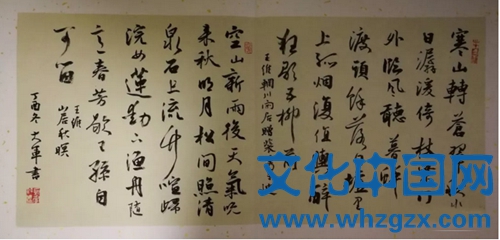 寒山轉蒼翠秋水
日潺湲倚杖柴門
外臨風聽暮蟬
渡頭餘落日墟里
上孤煙復值輿醉
狂歌五柳前
王維輞川閑居贈裴
空山新雨後天氣晚
來秋明月松間照清
泉石上流竹喧歸
浣女蓮動下漁舟隨
意春芳歇王孫自
可留
王維
山居秋暝
丁酉冬大軍書
文化中国网
www.whzgzx.com